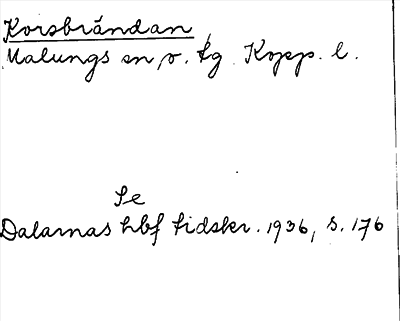 Korsbrändan
Malungs sn, v. tg. Kopp. l.
Se
Dalarnas hbf tidskr. 1936, s. 176